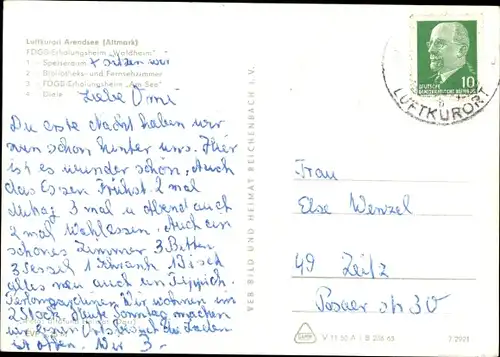 Luftkurort Arendsee (Altmark)
FDGB-Erholungsheim „Waldheim"
1 - Speiseraum x sitzen wir
2 - Bibliotheks- und Fernsehzimmer
3 - FDGB-Erholungsheim „Am See"
Diele
Liebe Omi
Du erste Nacht haben wir
nun schon hinter uns. Hier
ist es wunder schön, Auch
das Essen Frühst. 2 mal
Mittag 3 mal u Abend auch
2 mal Wahlessen. Auch ein
schönes Zimmer 3 Betten
3 Sessel 1 Schrank 1 Tisch
alles neu auch ein Teppich
Wir wohnen im
2 Stock. Heute Sonntag machen
wir einen die Läden
ist offen. Wir 3.
VEB BILD UND HEIMAT REICHENBACH I. V.
10
DEUTSCHE
DEMOKRATISCHE REPUBLIK
LUFTKURORT
Frau
Else Wenzel
49 Zeitz
Posaer Str 30
V 11 50 A 1 B 236/63